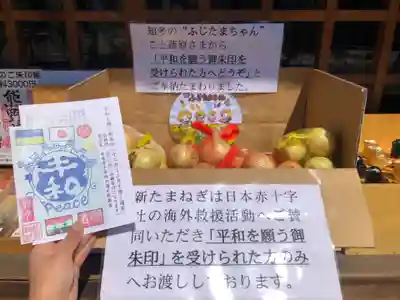 知考の“ふじたまちゃん”
こと藤原さまから
「平和を願う御朱印を
受けられた方へどうぞ」と
ご奉納たまわりました。
ご朱印帳
3000円
平和
新たまねぎは日本赤十字
社の海外救援活動へご賛
同いただき「平和を願う御
朱印」を受けられた方のみ
へお渡ししております。